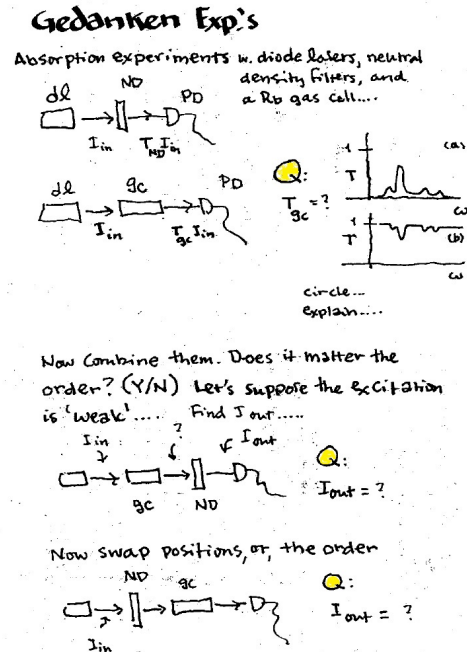 Gedanken Exp.'s
Absorption experiments w. diode lasers, neutral
density filters, and
a Rb gas cell....
dl ND PD
I in T ND I in
dl gc PD
I in T gc I in
Q:
T gc = ?
1 T (a) ω
1 T (b) ω
circle...
explain....
Now combine them. Does it matter the
order? (Y/N) Let's suppose the excitation
is 'weak'.... Find I out.....
I in ? I out
gc ND
Q:
I out = ?
Now swap positions, or, the order
ND gc
I in
Q:
I out = ?